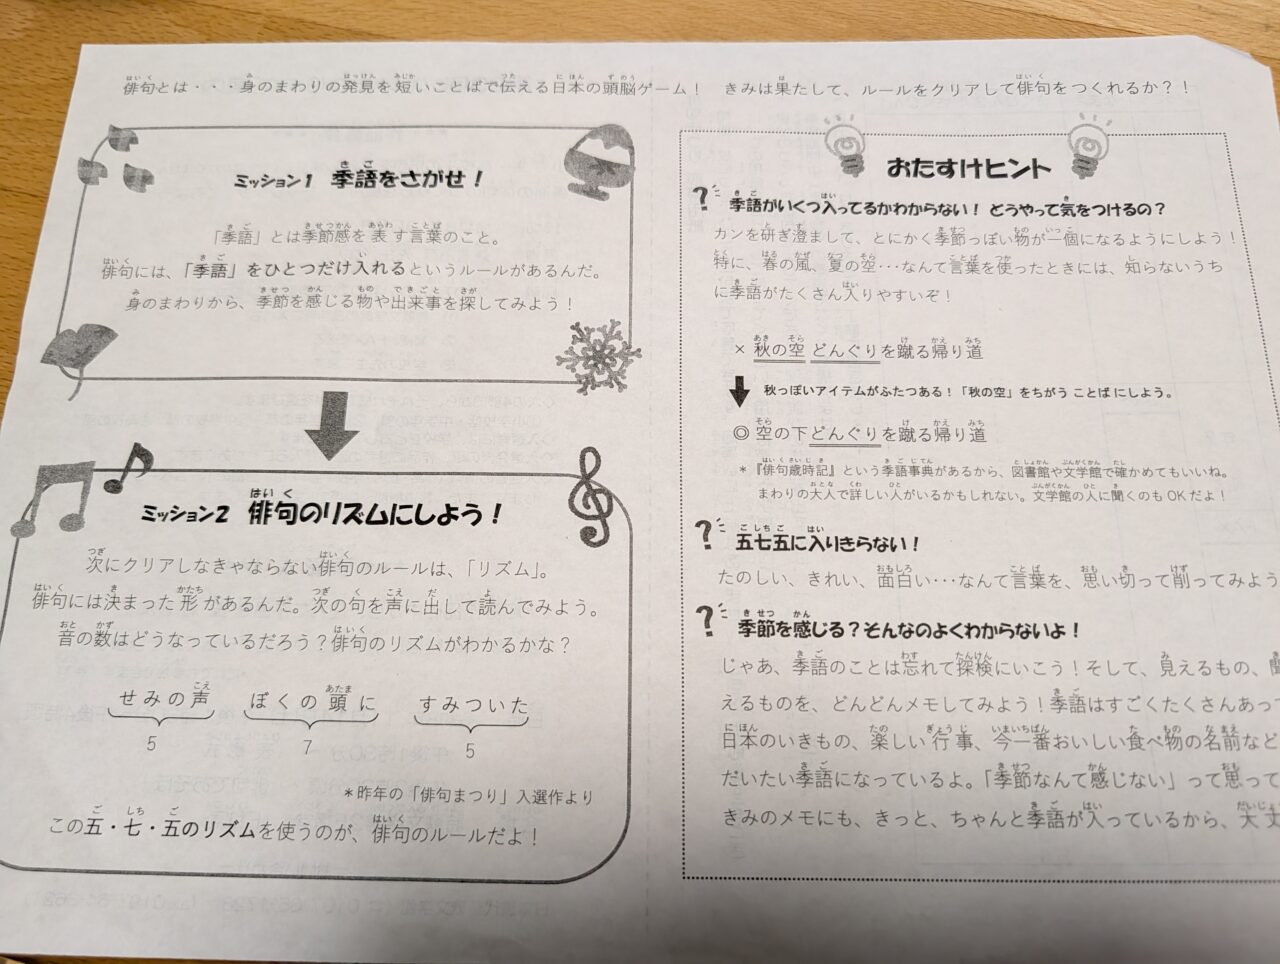 俳句とは・・・身のまわりの発見を短いことばで伝える日本の頭脳ゲーム！　きみは果たして、ルールをクリアして俳句をつくれるか？！
ミッション1　季語をさがせ！
「季語」とは季節感を表す言葉のこと。
俳句には、「季語」をひとつだけ入れるというルールがあるんだ。
身のまわりから、季節を感じる物や出来事を探してみよう！
ミッション2　俳句のリズムにしよう！
次にクリアしなきゃならない俳句のルールは、「リズム」。
俳句には決まった形があるんだ。次の句を声に出して読んでみよう。
音の数はどうなっているだろう？俳句のリズムがわかるかな？
せみの声　ぼくの頭に　すみついた
5　7　5
＊昨年の「俳句まつり」入選作より
この五・七・五のリズムを使うのが、俳句のルールだよ！
おたすけヒント
？季語がいくつ入ってるかわからない！どうやって気をつけるの？
カンを研ぎ澄まして、とにかく季節っぽい物が一個になるようにしよう！
特に、春の風、夏の空・・・なんて言葉を使ったときには、知らないうち
に季語がたくさん入りやすいぞ！
×秋の空 どんぐりを蹴る帰り道
秋っぽいアイテムがふたつある！「秋の空」をちがう ことば にしよう。
◎空の下どんぐりを蹴る帰り道
＊『俳句歳時記』という季語事典があるから、図書館や文学館で確かめてもいいね。
まわりの大人で詳しい人がいるかもしれない。文学館の人に聞くのもOKだよ！
？五七五に入りきらない！
たのしい、きれい、面白い・・・なんて言葉を、思い切って削ってみよう
？季節を感じる？そんなのよくわからないよ！
じゃあ、季語のことは忘れて探検にいこう！そして、見えるもの、聞
えるものを、どんどんメモしてみよう！季語はすごくたくさんあっ
日本のいきもの、楽しい行事、今一番おいしい食べ物の名前など
だいたい季語になっているよ。「季節なんて感じない」って思って
きみのメモにも、きっと、ちゃんと季語が入っているから、大丈